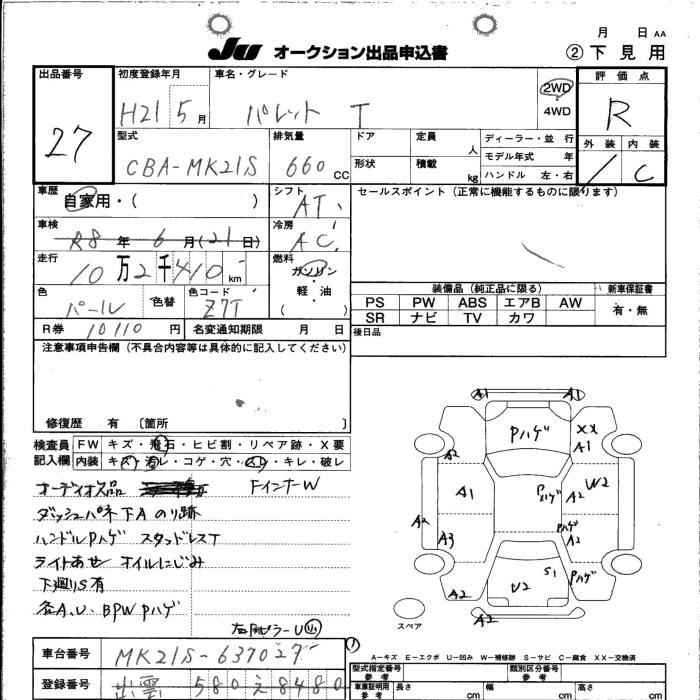 月 日 AA
JU オークション出品申込書 ② 下見用
出品番号 初度登録年月 車名・グレード 評価点
27 H21 5月 パレット T 2WD・4WD R
型式 排気量 ドア 定員 人 ディーラー・並行 外装 内装
CBA-MK21S 660 CC 形状 積載 kg モデル年式 年 / C
ハンドル 左・右
車歴 自家用・( ) シフト AT セールスポイント (正常に機能するものに限ります)
車検 R8年 6月(21日) 冷房 AC
走行 10万2千410 km 燃料 ガソリン・軽・油 ( )
色 パール 色替 色コード Z7T
装備品 (純正品に限る) 新車保証書
PS PW ABS エアB AW 有・無
SR ナビ TV カワ
R券 10110 円 名変通知期限 月 日 後日品
注意事項申告欄 (不具合内容等は具体的に記入してください)
修復歴 有 〔箇所 〕
検査員 FW キズ・飛石・ヒビ割・リペア跡・X要
記入欄 内装 キズ・汚レ・コゲ・穴・スレ・キレ・破レ
オーディオ欠品 FインナーW
ダッシュパネ下A のり跡
ハンドルPハゲ スタッドレスT
ライトあせ オイルにじみ
下廻りS有
各A.U. BPW Pハゲ
A1 A1
Pハゲ XX
A1
A2
A1 Pハゲ A2 W2
A2 A3 Pハゲ A2
U2 S1 Pハゲ
A2 A2
スペア
車台番号 MK21S-637027
A-キズ E-エクボ U-凹み W-補修跡 S-サビ C-腐食 XX-交換済
登録番号 出雲 580 え 8480
型式指定番号 参考 類別区分番号 参考
車庫証明用 参考 長さ cm 幅 cm 高さ cm